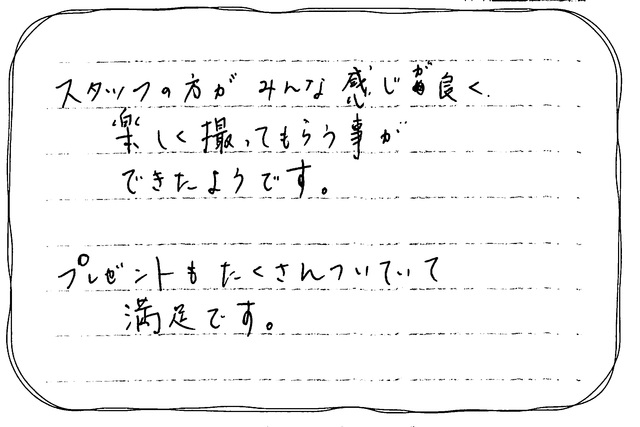 スタッフの方が みんな 感じが良く、
楽しく撮ってもらう事が
できたようです。
プレゼントも たくさんついていて
満足です。